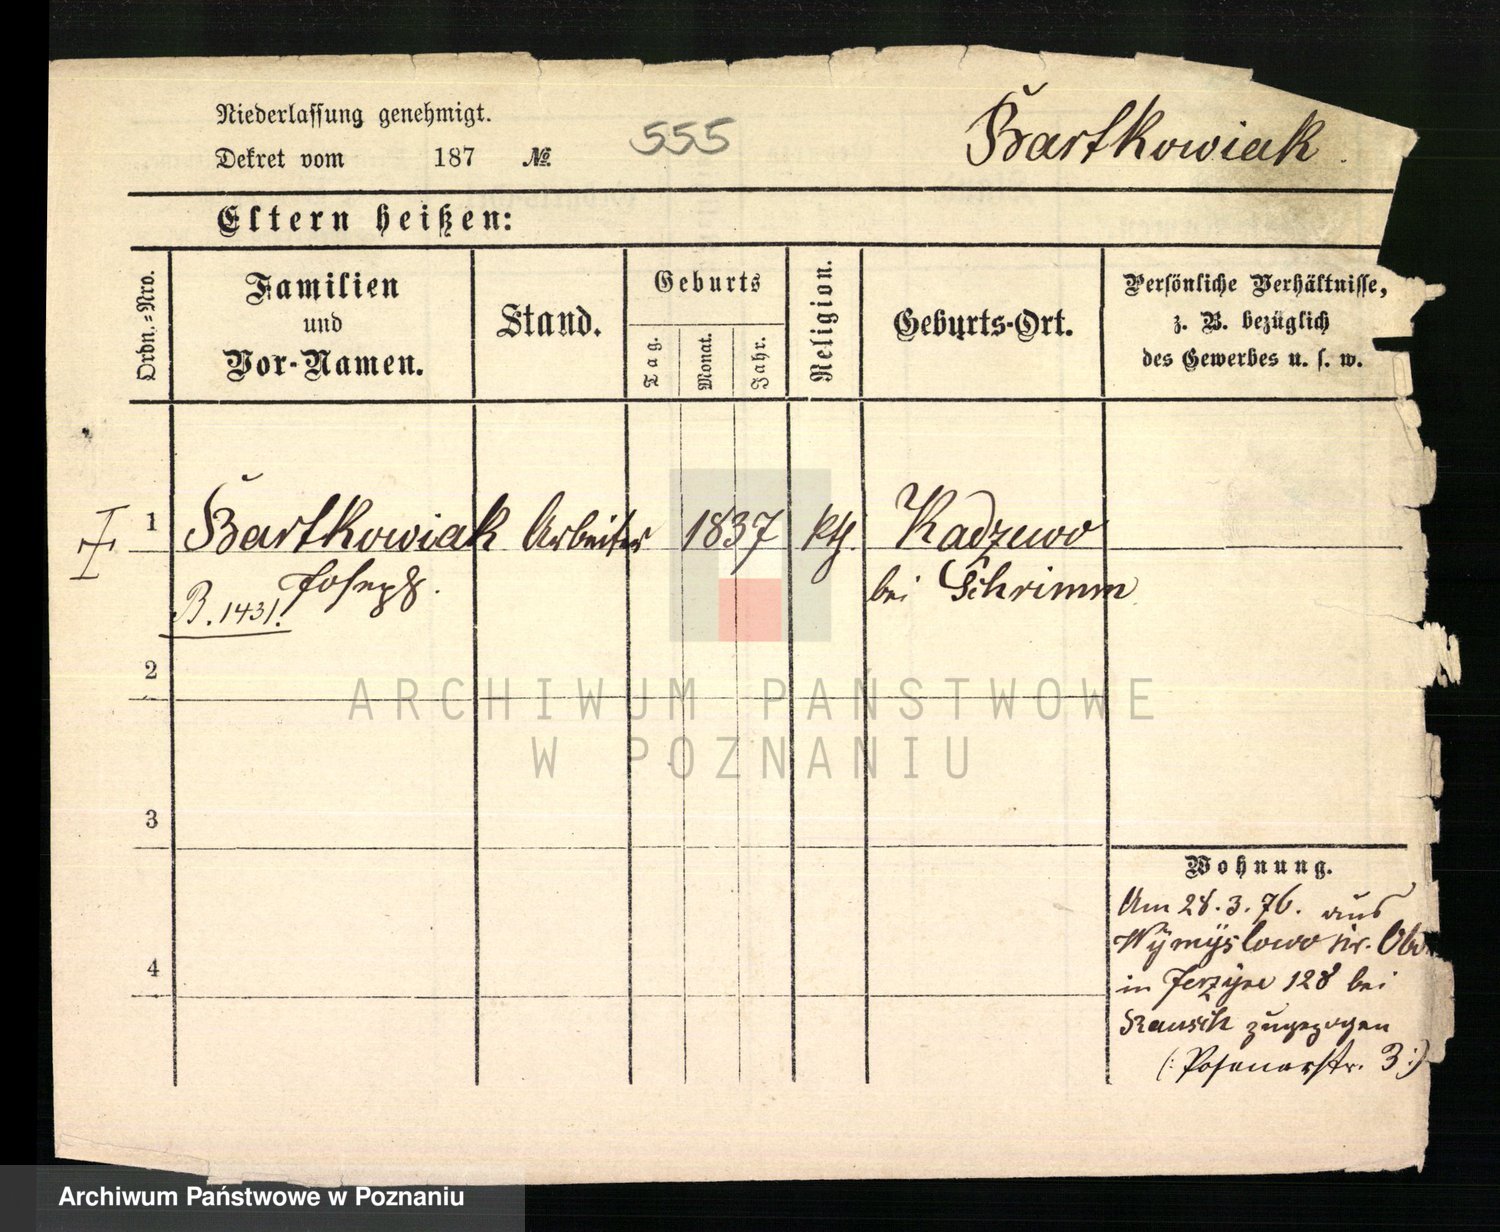 Niederlassung genehmigt.
Dekret vom 187 №
555
Bartkowiak
Eltern heißen:
Ordn.-Nro.
Familien
und
Vor-Namen.
Stand.
Geburts
Tag.
Monat.
Jahr.
Religion.
Geburts-Ort.
Persönliche Verhältnisse,
z. B. bezüglich
des Gewerbes u. s. w.
1 Bartkowiak Arbeiter 1837 kth. Kadzewo
Joseph. bei Schrimm
B. 1431.
2
ARCHIWUM PAŃSTWOWE
W POZNANIU
3
4
Wohnung.
Am 28.3.76. aus
Wÿmÿslowo Kr.
in Jerzÿce 128 bei
zugezogen
(: Posenerstr. 3 :)
Archiwum Państwowe w Poznaniu